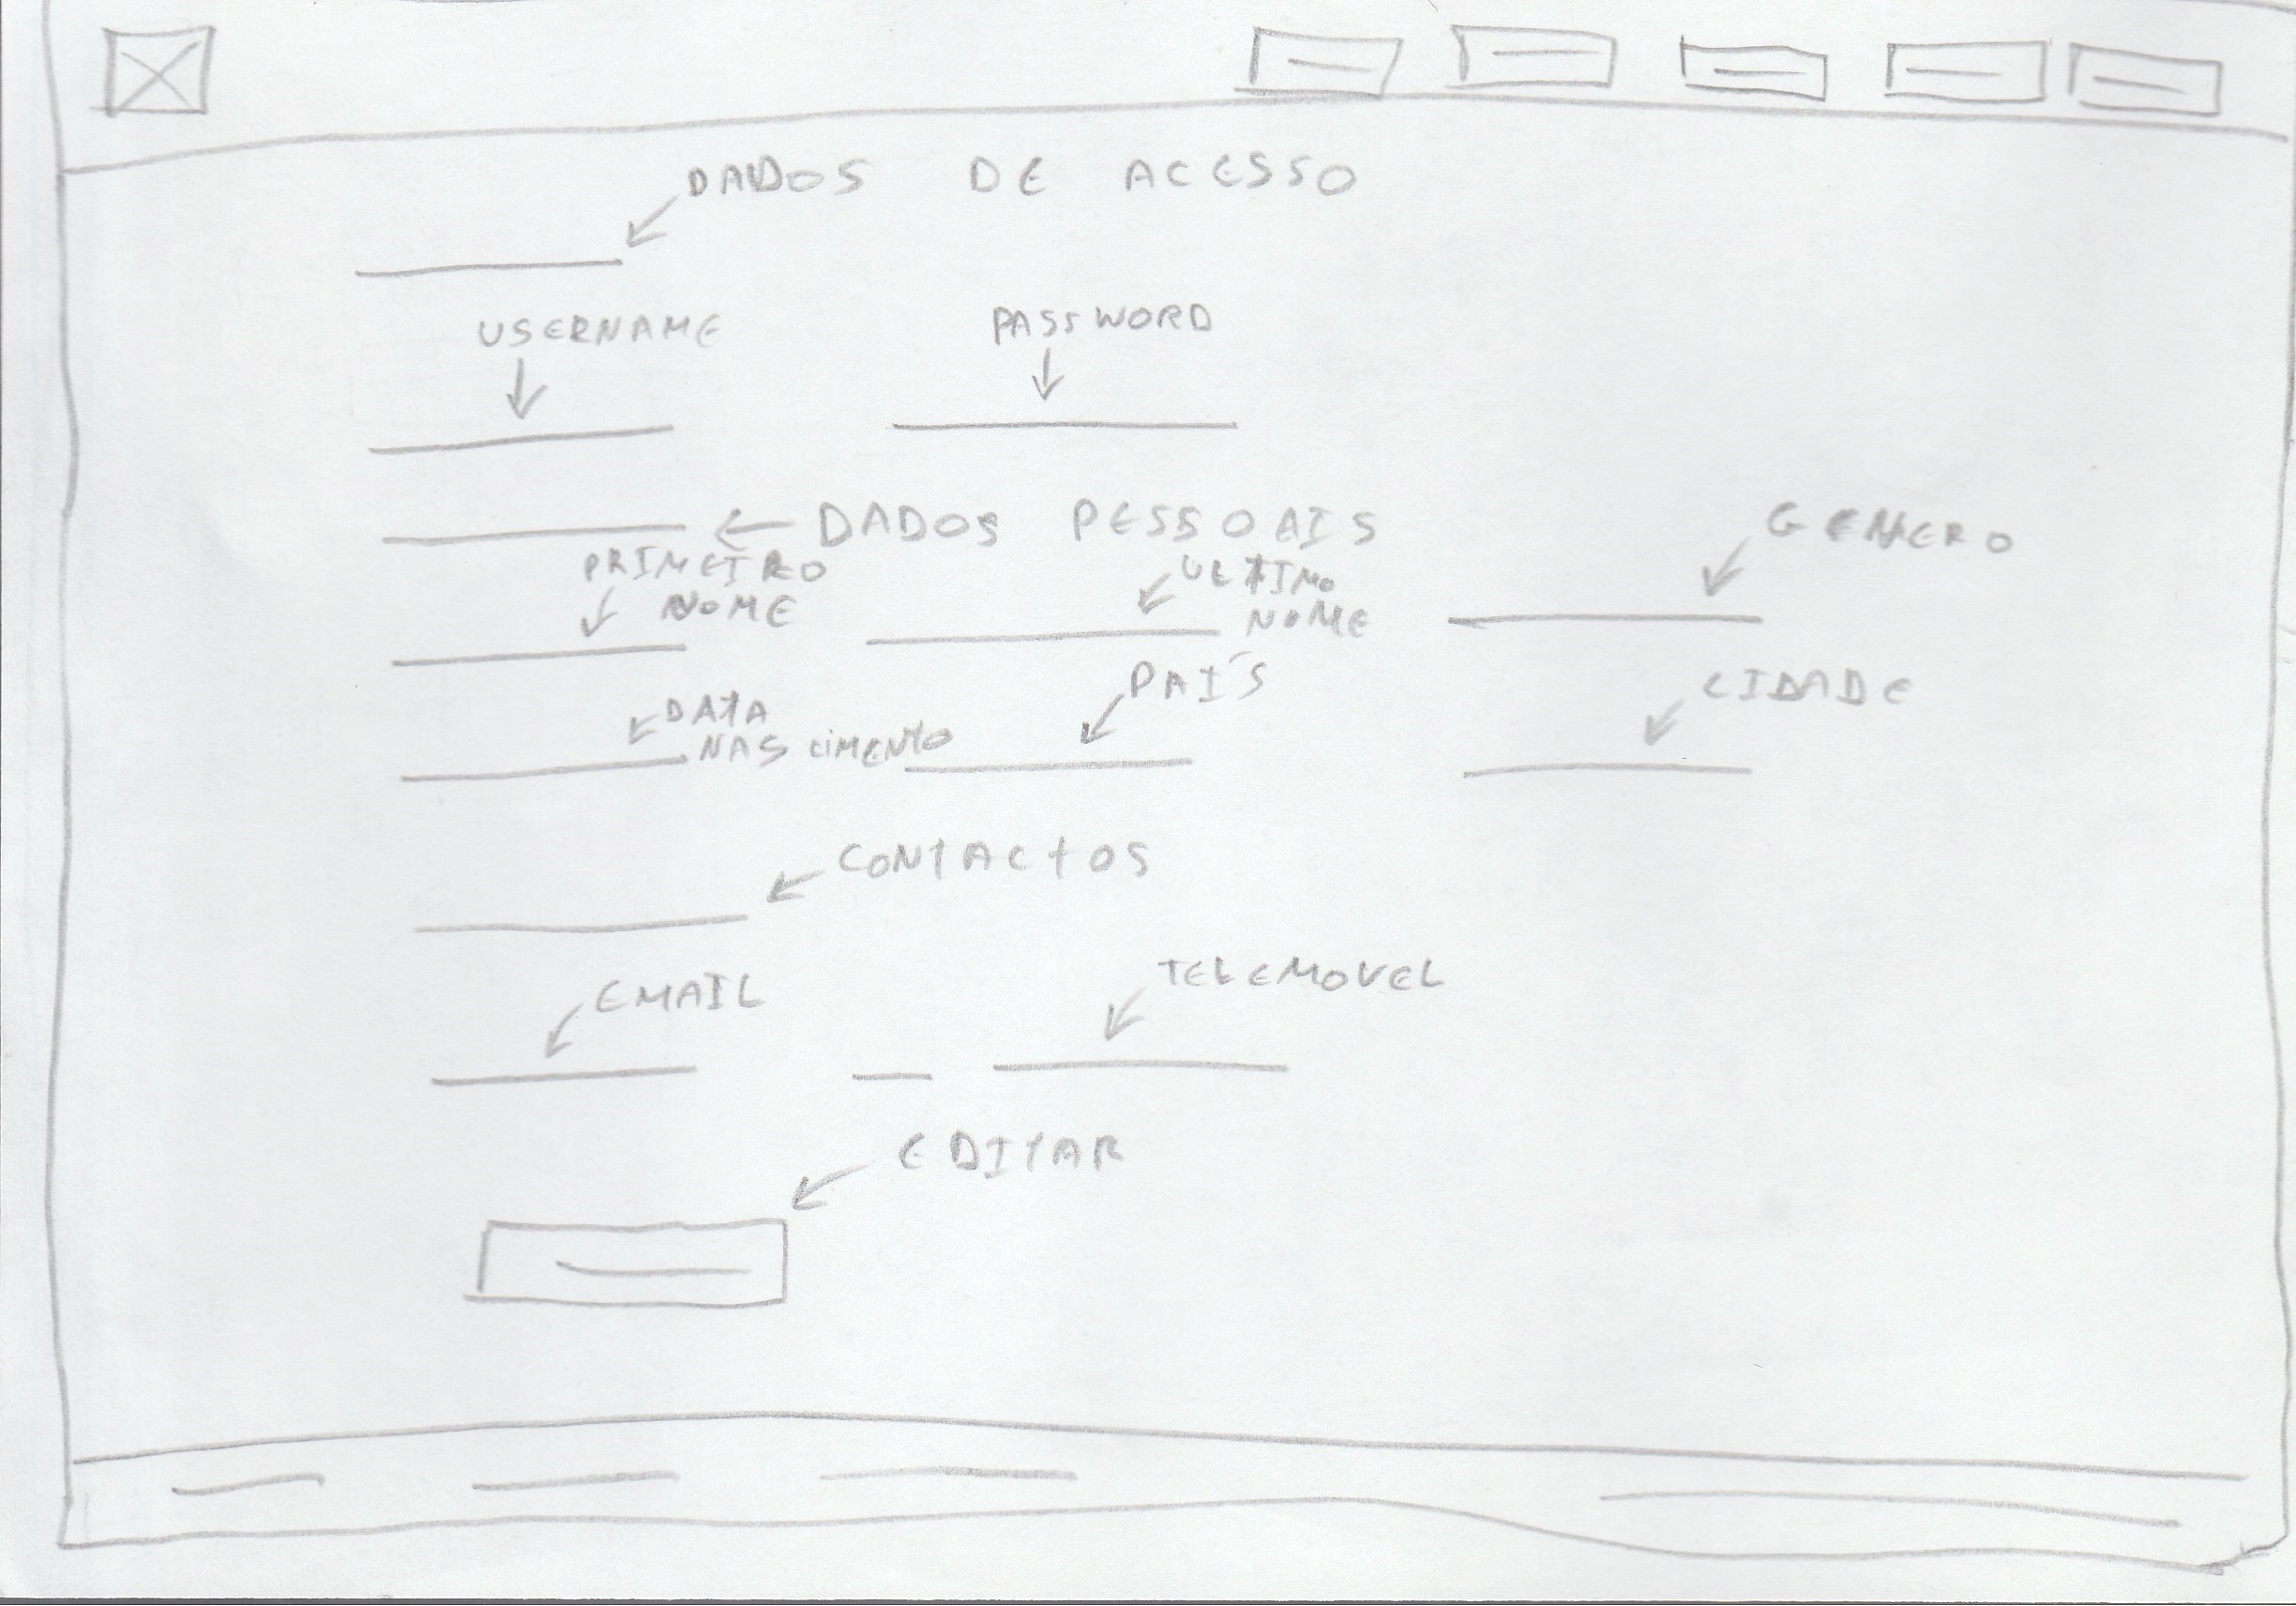 DADOS DE ACESSO
USERNAME
PASSWORD
DADOS PESSOAIS
GENERO
PRIMEIRO
NOME
ULTIMO
NOME
DATA
NASCIMENTO
PAÍS
CIDADE
CONTACTOS
EMAIL
TELEMOVEL
EDITAR